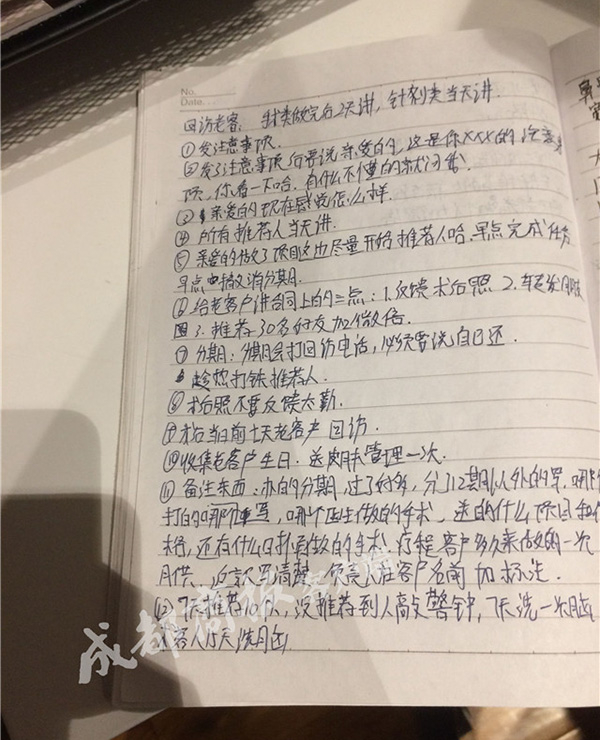 No.
Date.
回访老客: 针类做完后2天讲,针剂类当天讲.
①发注意事项.
②发了注意事项后要说亲爱的,这是你XXX的注意事
项,你看一下哈.有什么不懂的就问我
③亲爱的现在感觉怎么样.
④所有推荐人当天讲.
⑤亲爱的做了项目这边尽量开始推荐人哈.早点完成任务
早点申撤消分期.
⑥给老客户讲合同上的三点:1.反馈术后照 2.
圈3.推荐30名好友加微信.
⑦分期:分期会打回访电话,必须要说自己还.
趁热打铁推荐人.
⑧术后照不要反馈太勤.
⑨术后当日前七天老客户回访.
⑩收集老客户生日.送皮肤管理一次.
⑪备注东西:办的分期,过了好多,分了12期以外的写,哪
打的哪个重写,哪个医生做的手术,送的什么项目和
,还有什么日期做的手术,疗程客户多久来做的一次
月供.记录清醒,在客户名前加标注.
⑫7天推荐10个人,没推荐到人高度警钟,7天洗一次脑
客人15天洗脑
成都商报客户端